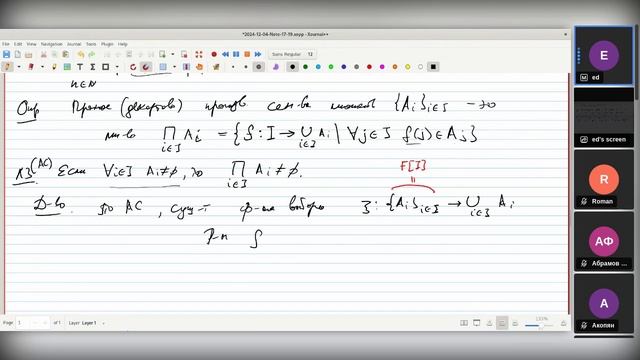 *2024-12-04-Note-17-19.xopp - Journal++
File Edit View Navigation Journal Tools Plugin Help
Sans Regular 12
n∈N
Опр Прямое (декартово) произв. сем-ва множеств {A_i}_{i∈I} – это
мн-во ∏_{i∈I} A_i = {f : I → ∪_{i∈I} A_i | ∀j∈I f(j)∈A_j}
F[I]
(AC) Если ∀i∈I A_i≠∅, то ∏_{i∈I} A_i ≠ ∅.
Д-во. По AC, сущ-т ф-ия выбора ξ : {A_i}_{i∈I} → ∪_{i∈I} A_i
Р-м f
Page 1 of 1 Layer: Layer 1
133%
E
ed
ed's screen
R
Roman
АФ
Абрамов ...
A
Акопян